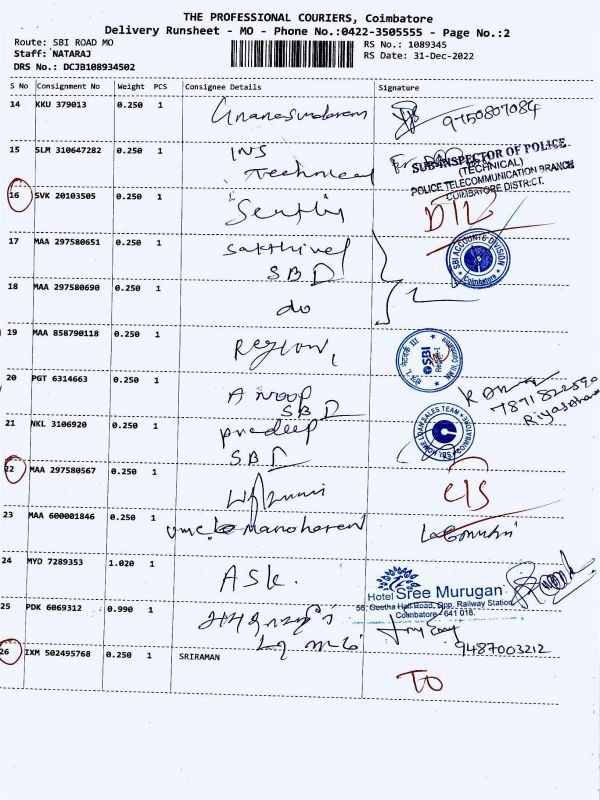 THE PROFESSIONAL COURIERS, Coimbatore
Delivery Runsheet - MO - Phone No.:0422-3505555 - Page No.:2
Route: SBI ROAD MO
RS No.: 1089345
Staff: NATARAJ
RS Date: 31-Dec-2022
DRS No.: DCJB108934502
S No Consignment No Weight PCS Consignee Details Signature
14 KKU 379013 0.250 1 Gnanasundaram 9750807084
15 SLM 310647282 0.250 1 INS
Technical
SUB-INSPECTOR OF POLICE
(TECHNICAL)
POLICE TELECOMMUNICATION BRANCH
COIMBATORE DISTRICT.
16 SVK 20103505 0.250 1 Senthil D/L
17 MAA 297580651 0.250 1 Sakthivel
SBI
SBI ACCOUNTS DIVISION
Coimbatore
18 MAA 297580690 0.250 1 do
19 MAA 858790118 0.250 1 Region, SBI
20 PGT 6314663 0.250 1 Anoop
SBI
7871822590
21 NKL 3106920 0.250 1 pradeep
SBI
SBI HOME LOAN SALES TEAM COIMBATORE
22 MAA 297580567 0.250 1 C/S
23 MAA 600001846 0.250 1 Manoharan
24 MYD 7289353 1.020 1 ASK.
Hotel Sree Murugan
56, Geetha Hall Road, Opp. Railway Station,
Coimbatore - 641 018.
25 PDK 6069312 0.990 1
9487003212
26 IXM 502495768 0.250 1 SRIRAMAN TO